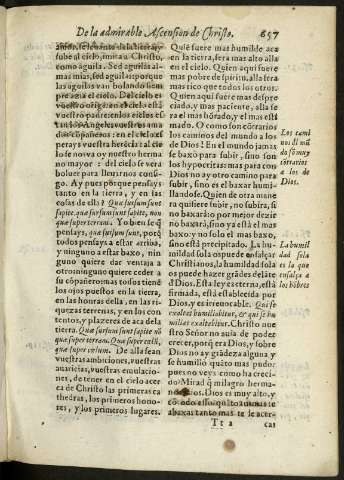 De la admirable Ascension de Christo. 657
sube al cielo, imita a Christo,
como aguila. Sed aguilas al-
mas mias, sed aguilas: porque
las aguilas van bolando siem
pre azia el cielo. Del cielo es
vuestro origen: en el cielo està
en el cielo es
perays vuestra herẽcia: al cie
lo se no va oy nuestro herma
no mayor: del cielo se verà
boluer para lleuarnos consi-
go. Ay pues porque pensays
tanto en la tierra, y en las
cosas de ella? Quæ sursum sunt
sapite, quæ sursum sunt sapite, non
quæ super terram. Y bien se q̃
pensays, quæ sursum sunt, porq̃
todos pensays a estar arriba,
y ninguno a estar baxo, nin
guno quiere dar ventaja a
otro: ninguno quiere ceder a
su cõpañero: mas todos tiene
los ojos puestos en la tierra,
en las honras della, en las ri-
quezas terrenas, y en los con
tentos, y plazeres de aca de la
tierra. Quæ sursum sunt sapite nõ
quæ super terram. Quæ super cœlũ,
quæ super cœlum. De alla sean
vuestras ambiciones, vuestras
auaricias, vuestras emulacio-
nes, de tener en el cielo acer
ca de Christo las primeras ca
thedras, los primeros hono-
res, y los primeros lugares.
Quiẽ fuere mas humilde aca
en la tierra, sera mas alto alla
en el cielo. Quien aqui fuere
mas pobre de spiritu, alla sera
mas rico que todos los otros.
Quien aqui fuere mas despre
ciado, y mas paciente, alla se
ra el mas hõrado, y el mas est
mado. O como son cõtrarios
los caminos del mundo a los
de Dios! En el mundo jamas
de baxò para subir, sino son
los hypocritas: mas para con
Dios no ay otro camino para
subir, sino es el baxar humi-
llandose. Quien de otra mane
ra quisiere subir, no subira, si
no baxarà: o por mejor dezir
no baxarà, sino ya està el mas
baxo, y no solo el mas baxo,
sino està precipitado. La hu-
mildad sola os puede ensalçar
Christianos, la humildad sola
os puede hazer grãdes delãte
d̃ Dios. Esta ley es eterna, està
firmada, està establecida por
Dios, y es irreuocable. Qui se
exaltat humiliabitur, & qui se hu
miliat exaltabitur. Christo nue
stro Señor no auia de poder
crecer, porq̃ era Dios, y sobre
Dios no ay grãdeza alguna y
se humillò quãto mas pudo:
pues no veys como ha creci-
do: Mirad q̃ milagro herma-
nos. Dios es muy alto, y
abaxas tanto mas te le acer-
Los cami
nos del mũ
do son muy
cõtrarios
a los de
Dios.
La humil
dad sola
es la que
ensalça a
los hõbres
Tt 2
cas